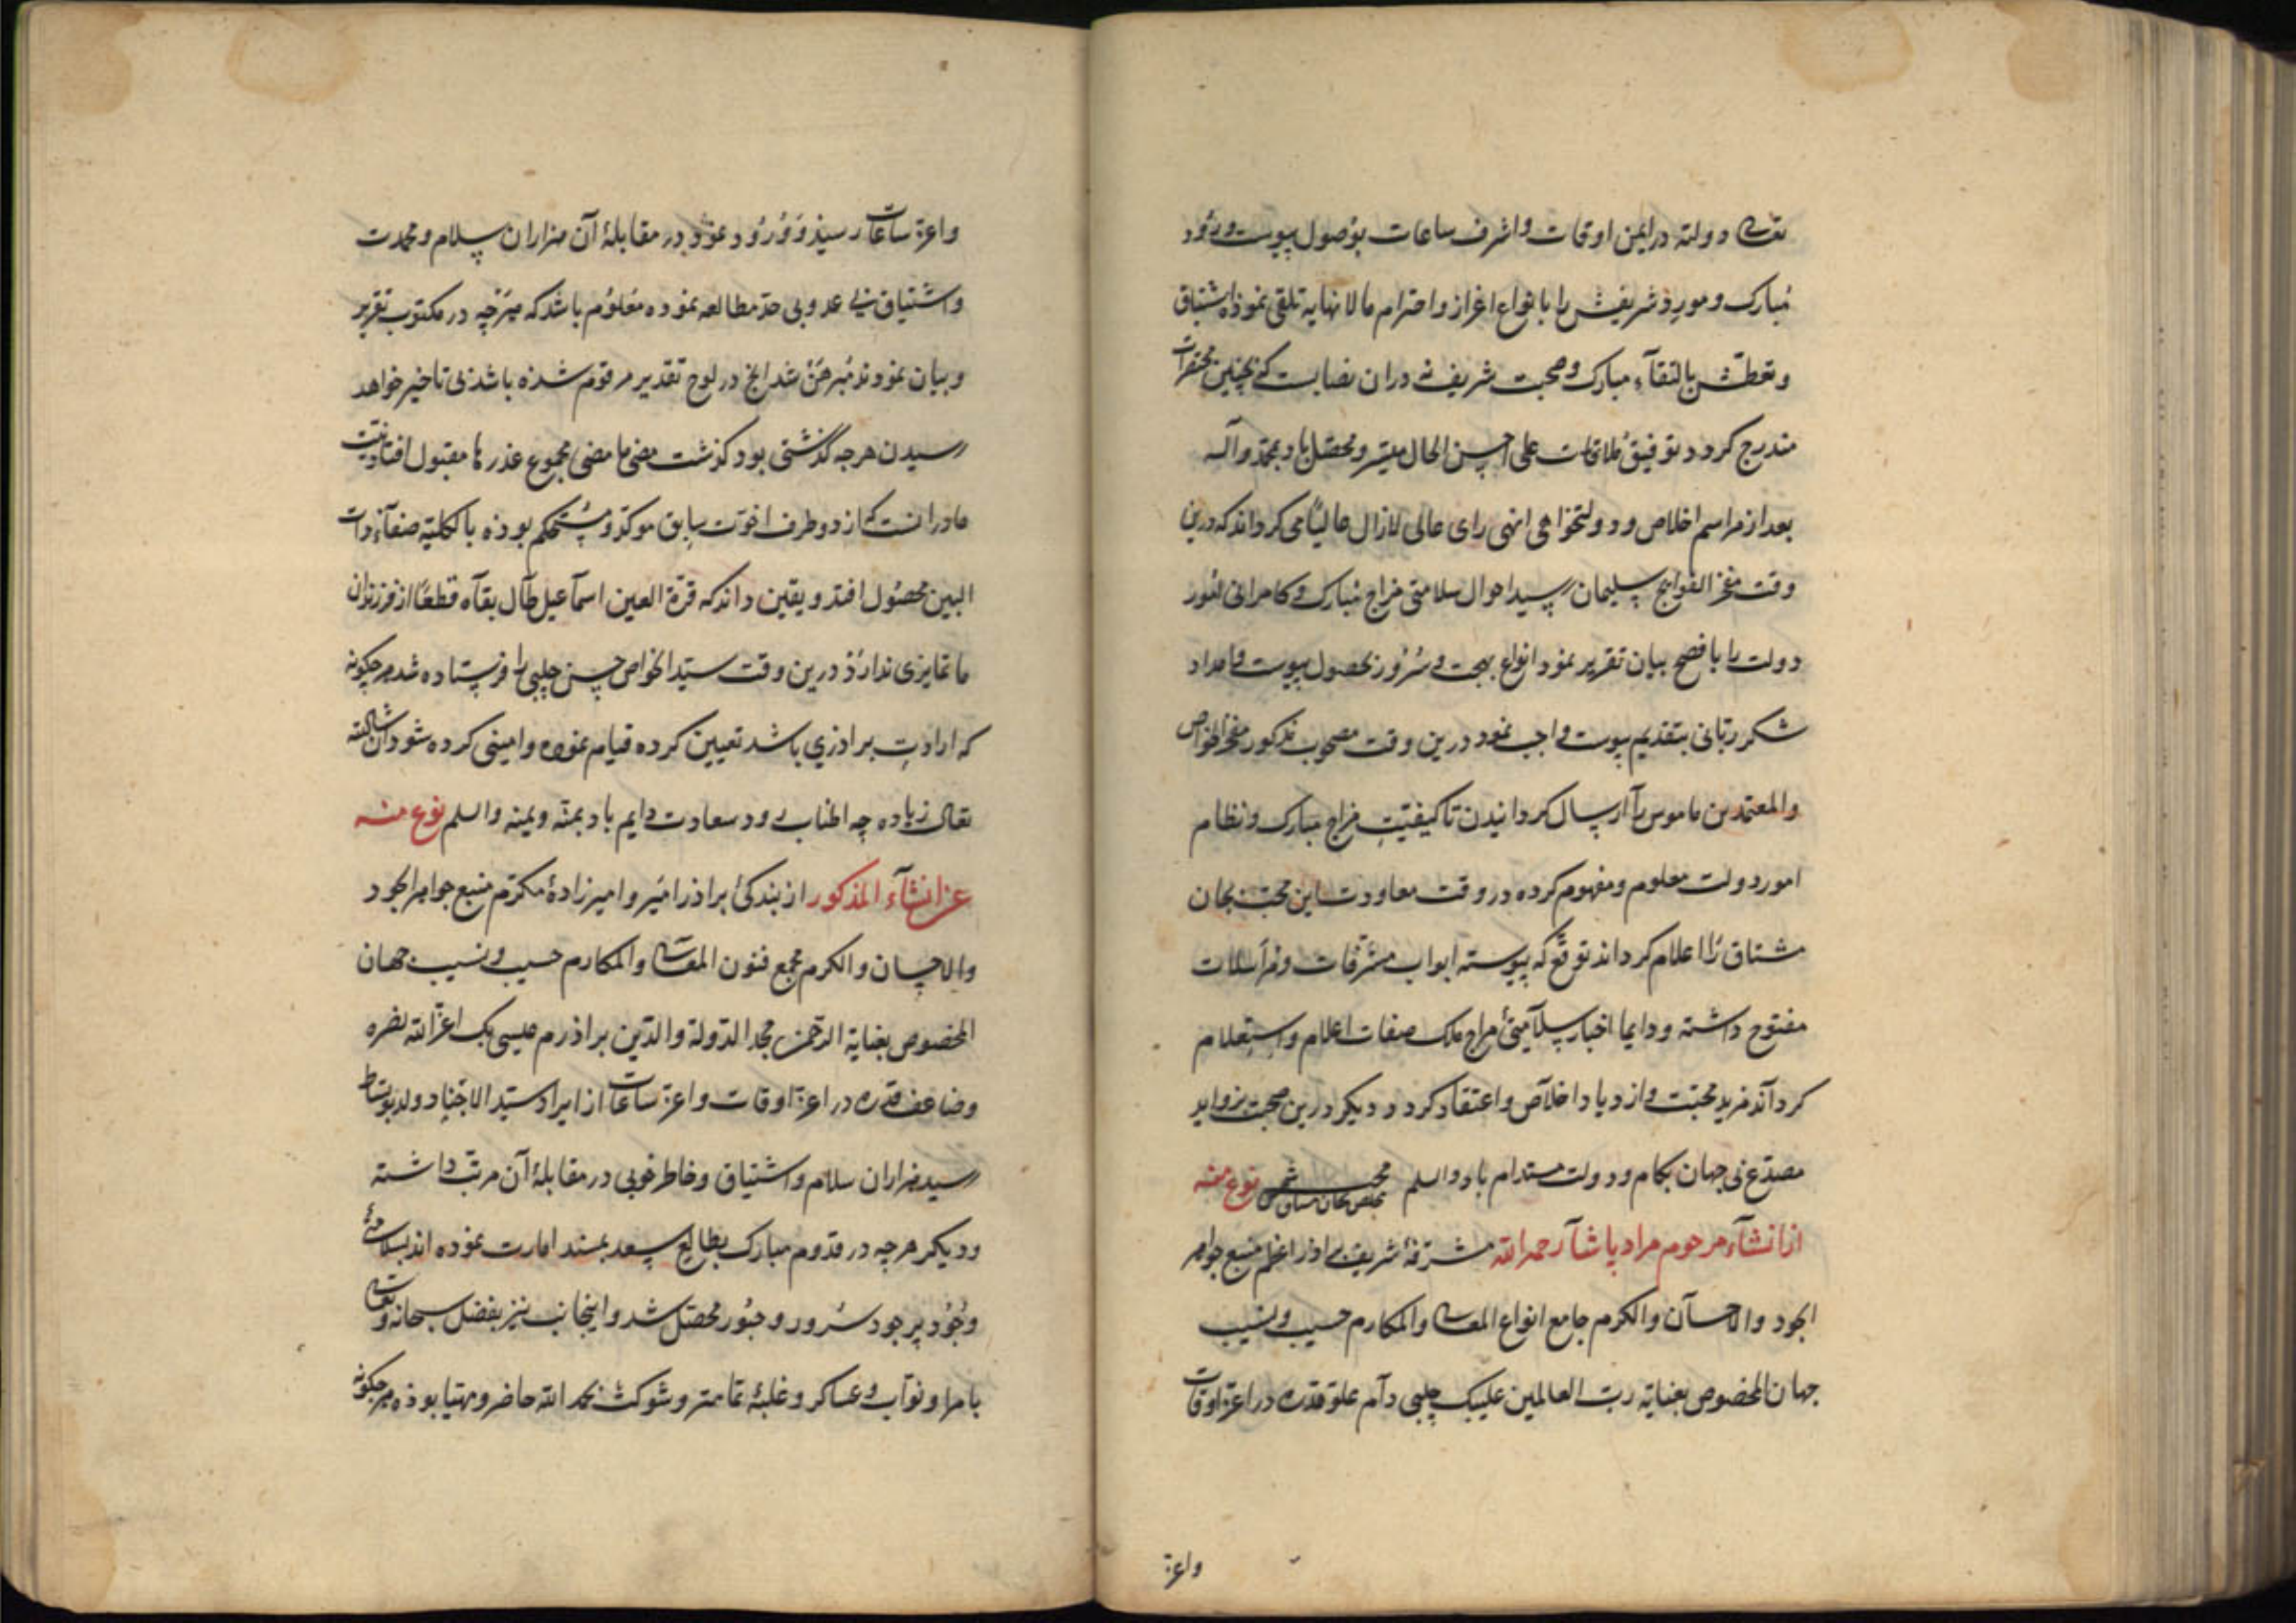 تعالی دولته در ایمن اوقات و اشرف ساعات بوصول پیوست ورود
مبارک و مورد شریفش را بانواع اعزاز و احترام مالانهایه تلقی نموذ اشتیاق
و تعطش بالتقآء مبارک و صحبت شریف نه دران نصابست کی بچنین محقرات
مندرج کردد توفیق ملاقات علی احسن الحال میسر و محصل باد بمحمد وآله
بعد از مراسم اخلاص و دولتخواهی انهی رای عالی لازال عالیا می کرداند که درین
وقت مفخر الخواجج سلیمان رسید احوال سلامتی مزاج مبارک و کامرانی امور
دولت را بافصح بیان تقریر نمود انواع بهجت و سرور بحصول پیوست و امداد
شکر ربانی بتقدیم پیوست واجب نمود درین وقت مصحوب مذکور مفخر الخواص
والمعتمدین ماموس را ارسال کردانیدن تا کیفیت مزاج مبارک و نظام
امور دولت معلوم و مفهوم کرده در وقت معاودت این محب بجان
مشتاق را اعلام کرداند توقع که پیوسته ابواب مشرفات و مراسلات
مفتوح داشته و دایما اخبار سلامتئ مزاج ملک صفات اعلام و استعلام
کرداند مزید محبت و ازدیاد اخلاص و اعتقاد کردد و دیکر درین صحبت بزواید
مصدع نی جهان بکام و دولت مستدام باد والسلم نوع منه
از انشآء مرحوم مراد پاشا رحمه الله مشرفهٔ شریف براذر اعظم منبع جواهر
الجود والاحسان والکرم جامع انواع المعالی والمکارم حسیب و نسیب
جهان المخصوص بعنایة رب العالمین علیبک چلبی دام علو قدره در اعز اوقات
واعز
واعز ساعات رسیذ و ورود نموذ در مقابلهٔ آن هزاران سلام و محمدت
و اشتیاق بی عد و بی حد مطالعه نموده معلوم باشد که هرچه در مکتوب تقریر
و بیان نموذند مبرهن شد انچ در لوح تقدیر مرقوم شذه باشذ بی تاخیر خواهد
رسیدن هرجه گذشتی بود کذشت مضی ما مضی مجموع عذرها مقبول افتاد نیت
ما درانست که از دو طرف اخوت سابق موکد و مستحکم بوذه بالکلیه صفآء ذات
البین محصول افتد و یقین داند که قرة العین اسماعیل طال بقاه قطعا از فرزندان
ما تمایزی ندارذ درین وقت سید الخواص حسن چلبی را فرستاده شد هرچکونه
که ارادت براذری باشد تعیین کرده قیام نموده و امینی کرده شود ان شاالله
تعالی زیاده چه اطناب رود سعادت دایم باد بمنه ویمنه والسلم نوع منه
عز انشآء المذکور از بندکئ براذر امیر و امیرزادهٔ مکرم منبع جواهر الجود
والاحسان والکرم مجمع فنون المعالی والمکارم حسیب و نسیب جهان
المخصوص بعنایة الرحمن مجد الدولة والدین براذرم عیسی بک اعز الله نصره
وضاعف قدره در اعز اوقات و اعز ساعات از ایراد سید الاجناد
رسید هزاران سلام و اشتیاق و خاطر خوبی در مقابلهٔ آن مرتب داشته
و دیکر هرچه در قدوم مبارک بطالع سعد بمسند امارت نموده اند بسلامتئ
وجود پرجود سرور و حبور محصل شد و اینجانب نیز بفضل سبحانه و تعالی
بامرا و نواب و عساکر و غلبهٔ تمامتر و شوکت بحمد الله حاضر و مهیا بوذه هرچکونه